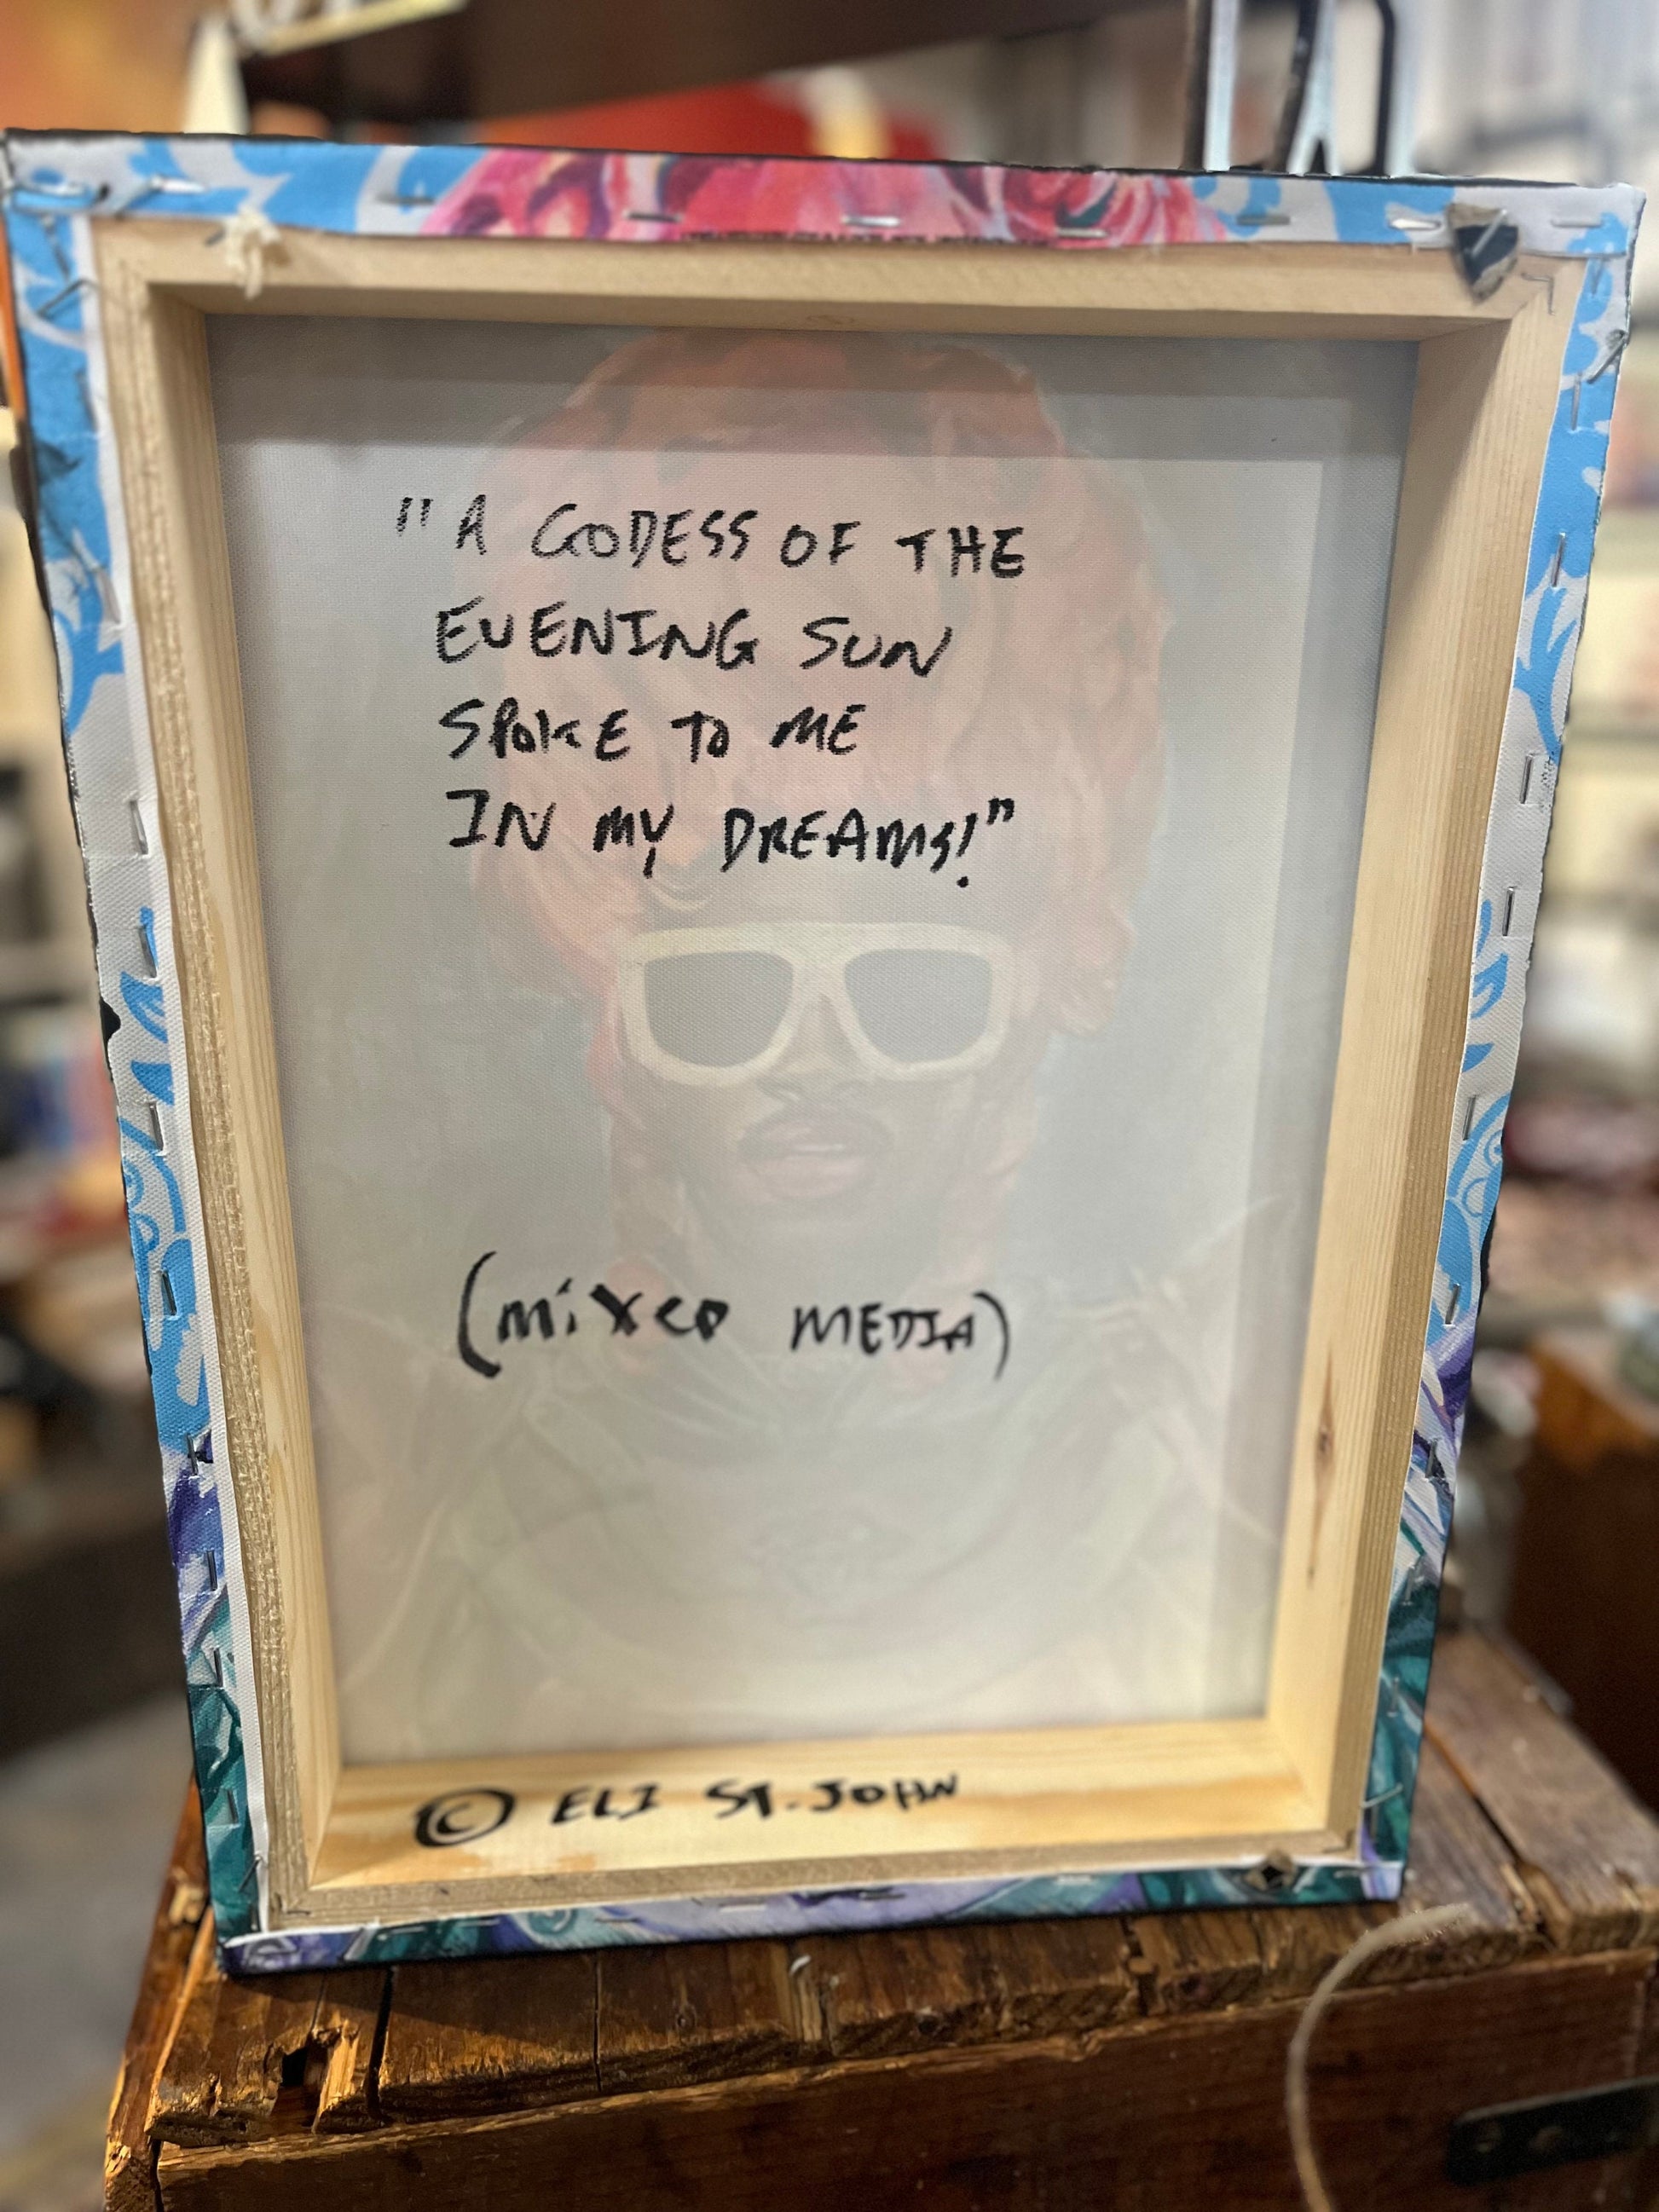 "A GODESS OF THE
EVENING SUN
SPOKE TO ME
IN MY DREAMS!"
(mixed MEDIA)
© ELI ST. JOHN